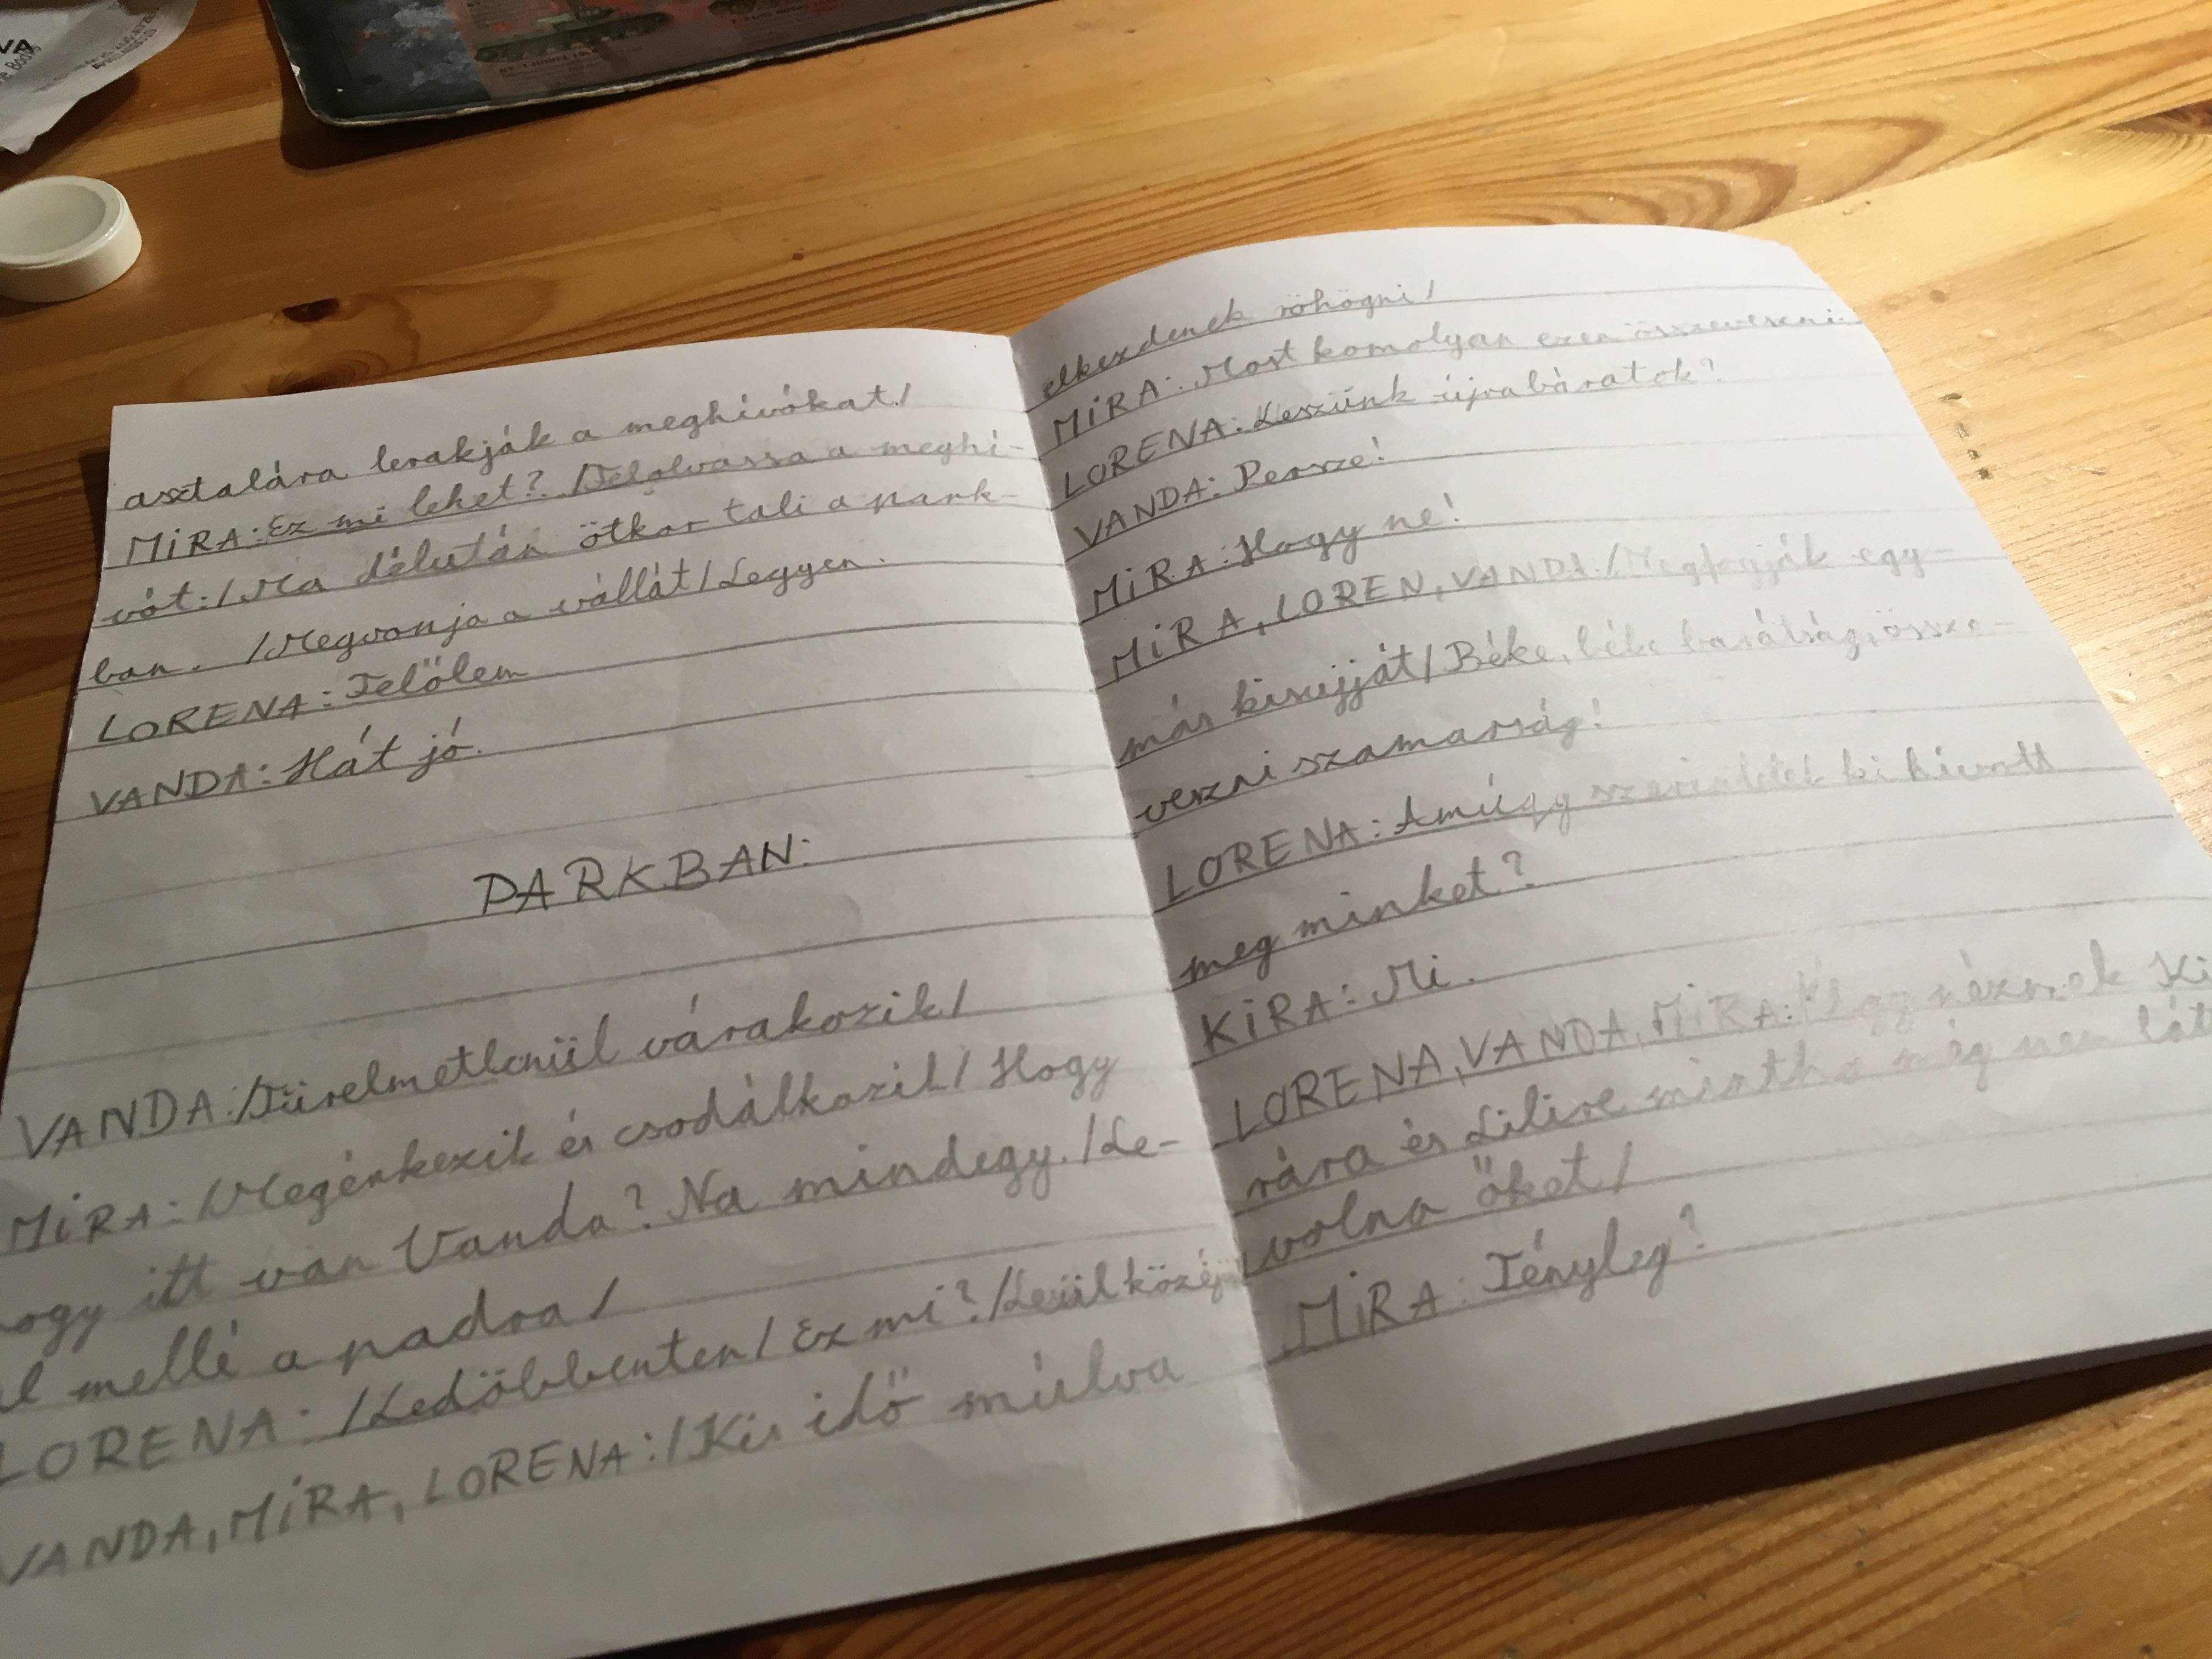 VA
asztalára lerakják a meghívókat/
MiRA: Ez mi lehet? /Felolvassa a meghí-
vót:/ Ma délután ötkor tali a park-
ban. /Megvonja a vállát/ Legyen.
LORENA: Felőlem
VANDA: Hát jó.
PARKBAN:
VANDA: /Türelmetlenül várakozik/
MiRA: /Megérkezik és csodálkozik/ Hogy
hogy itt van Vanda? Na mindegy. /Le-
ül mellé a padra/
LORENA: /Ledöbbenten/ Ez mi? /Leül közéj
VANDA, MiRA, LORENA: /Kis idő múlva
elkezdenek röhögni/
MiRA: Most komolyan ezen összeveszni.
LORENA: Leszünk újra barátok?
VANDA: Persze!
MiRA: Hogy ne!
MiRA, LOREN, VANDA: /Megfogják egy-
más kisujját/ Béke, béke barátság, össze-
veszni szamarság!
LORENA: Amúgy szerintetek ki hívott
meg minket?
KiRA: Mi.
LORENA, VANDA, MiRA: /Úgy néznek Ki
rára és Lilire mintha még nem lát
volna őket/
MiRA: Tényleg?